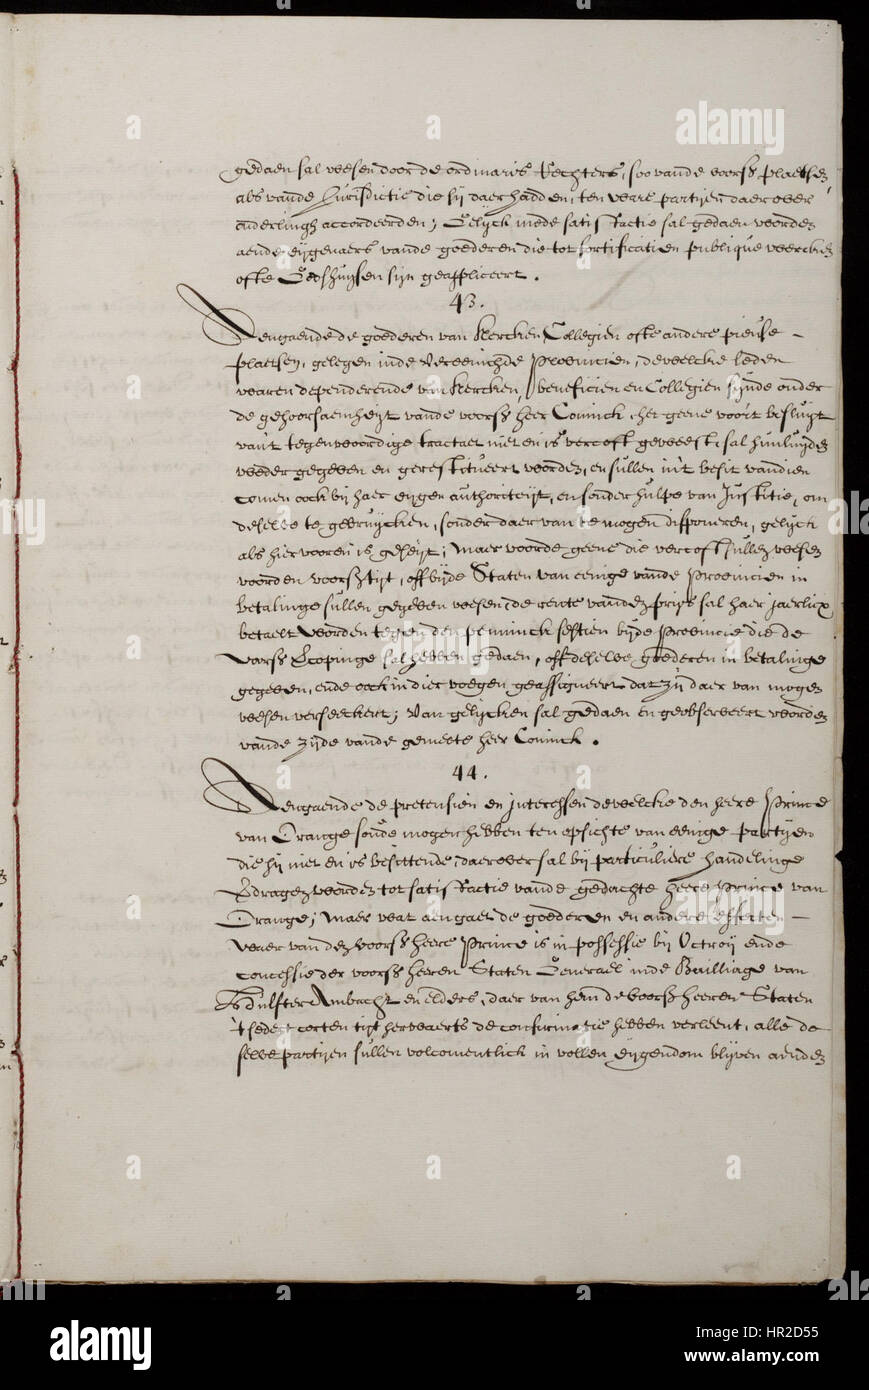 gedaen sal wesen door de ordinaris Rechters, soo vande voorsz plaetsen
als vande Jurisdictie die sij daer hadden, ten ware partijen daer over
onderlingh accordeerden; Gelijck mede satisfactie sal gedaen worden
aende eijgenaers vande goederen die tot fortificatien publique wercken
ofte Godshuijsen sijn geappliceert.
43.
Aengaende de goederen van Kercken Collegien ofte andere pieuse
plaetsen, gelegen inde Vereenichde Provincien, dewelcke leden
waren dependerende van Kercken, beneficien en Collegien sijnde onder
de gehoorsaemheijt vande voorsz heer Coninck, het geene voor't besluijt
van't tegenwoordige tractaet niet en is vercoft geweest, sal hunluijden
weder gegeven en gerestitueert worden, en sullen in't besit van dien
comen oock bij haer eijgen authoriteijt, en sonder hulpe van Justitie, om
deselve te gebruijcken, sonder daer van te mogen disponeren, gelijck
als hier vooren is geseijt; Maer voor de geene die vercoft sullen wesen
voor den voorsz tijt, off bijde Staten van eenige vande Provincien in
betalinge sullen gegeven wesen, de rente vanden prijs sal haer jaerlicx
betaelt worden tegen den penninck sestien bijde Provincie die de
voorsz Vercopinge sal hebben gedaen, oft deselve goederen in betalinge
gegeven, ende oock in dier voegen geassigneert dat zij daer van mogen
wesen verseeckert; Van gelijcken sal gedaen en geobserveert worden
vande zijde vande gemelte heer Coninck.
44.
Aengaende de pretensien en interessen dewelcke den heere Prince
van Orange soude mogen hebben ten opsichte van eenige partijen
die hij niet en is besittende, daer over sal bij particuliere handelinge
gedragen worden tot satisfactie vande gedachte heere Prince van
Orange; Maer wat aengaet de goederen en andere effecten
waer van den voorsz heere Prince is in possessie bij Octroij ende
Concessie der voorsz heeren Staten Generael inde Bailliage van
Hulster Ambacht en elders, daer van hem de voorsz heeren Staten
't sedert corten tijt herwaerts de confirmatie hebben verleent, alle de
selve partijen sullen volcomentlick in vollen eijgendom blijven aenden
alamy stock photo
HR2D55
www.alamy.com